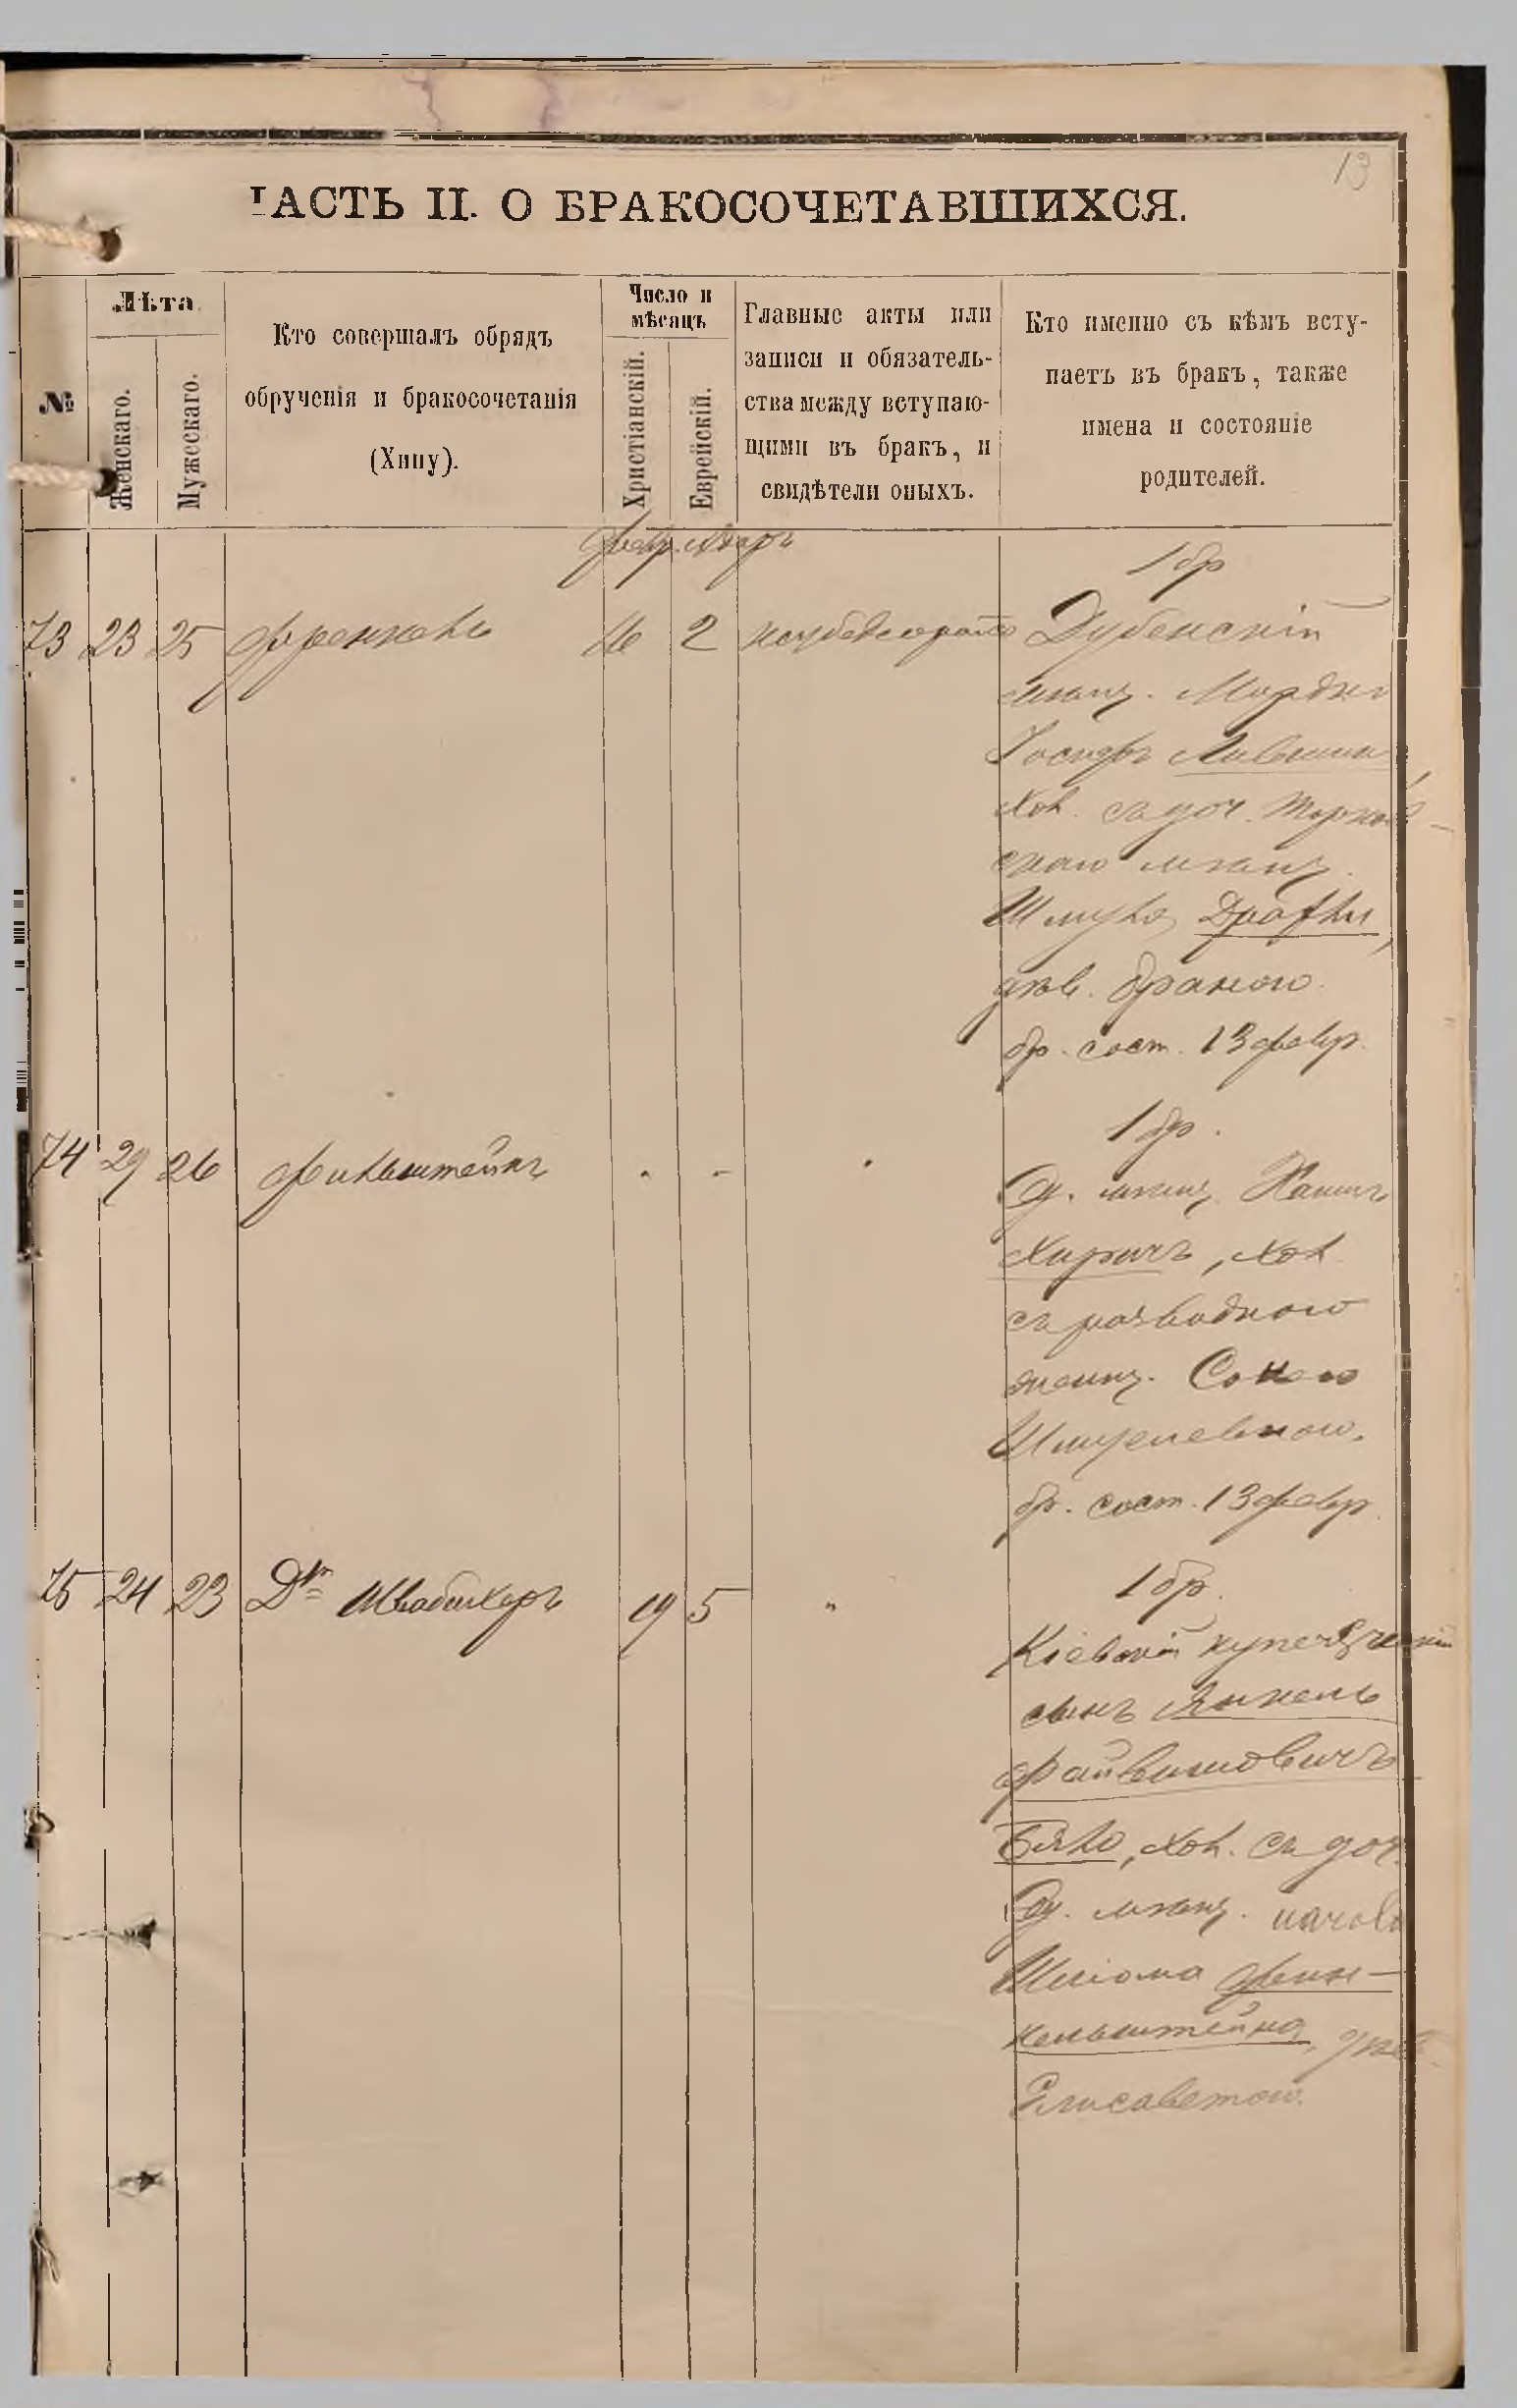 13
ЧАСТЬ II. О БРАКОСОЧЕТАВШИХСЯ.
№
Лѣта
Женскаго.
Мужескаго.
Кто совершалъ обрядъ
обрученія и бракосочетанія
(Хипу).
Число и
мѣсяцъ
Христіанскій.
Еврейскій.
Главные акты или
записи и обязатель-
ства между вступаю-
щими въ бракъ, и
свидѣтели оныхъ.
Кто именно съ кѣмъ всту-
паетъ въ бракъ, также
имена и состояніе
родителей.
Февр. Адаръ
1 бр
73 23 25 Френкель 16 2 Дубенскій
мѣщ. Мордко
Іосифъ
хол. съ доч.
скаго мѣщ.
Шмуля
дѣв.
бр. сост. 13 февр.
1 бр.
74 29 26 Финкельштейнъ
Од. мѣщ. Хаимъ
хол.
съ разводною
женщ. Сонею
Шмулевною.
бр. сост. 13 февр.
75 24 23 Дръ Швабахеръ 19 5 "
1 бр.
Кіевскій купеческій
сынъ Янкель
Файвишовичъ
хол. съ доч.
Од. мѣщ.
Шліома Фин-
кельштейна, дѣв.
Елисаветою.